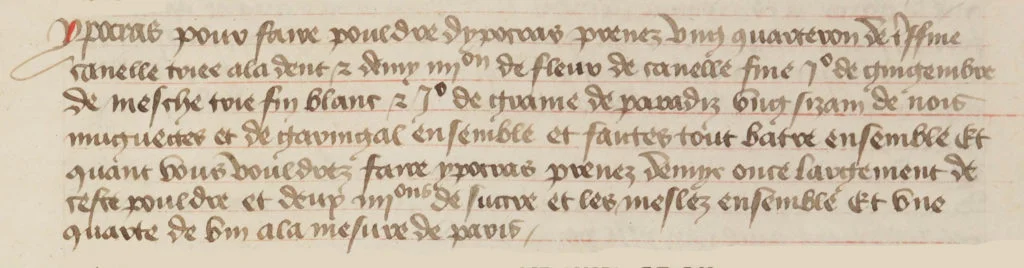 ypocras pour faire pouldre dypocras prenez vng quarteron de tresfine
canelle triee a la dent & demy iiiion de fleur de canelle fine 1o de gingembre
de mesche trie fin blanc & 1o de graine de paradiz vng sizain de nois
muguectes et de garingal ensemble et faictes tout batre ensemble Et
quant vous vouldrez faire ypocras prenez demye once largement de
ceste pouldre et deux iiiions de sucre et les meslez ensemble Et vne
quarte de vin a la mesure de paris /